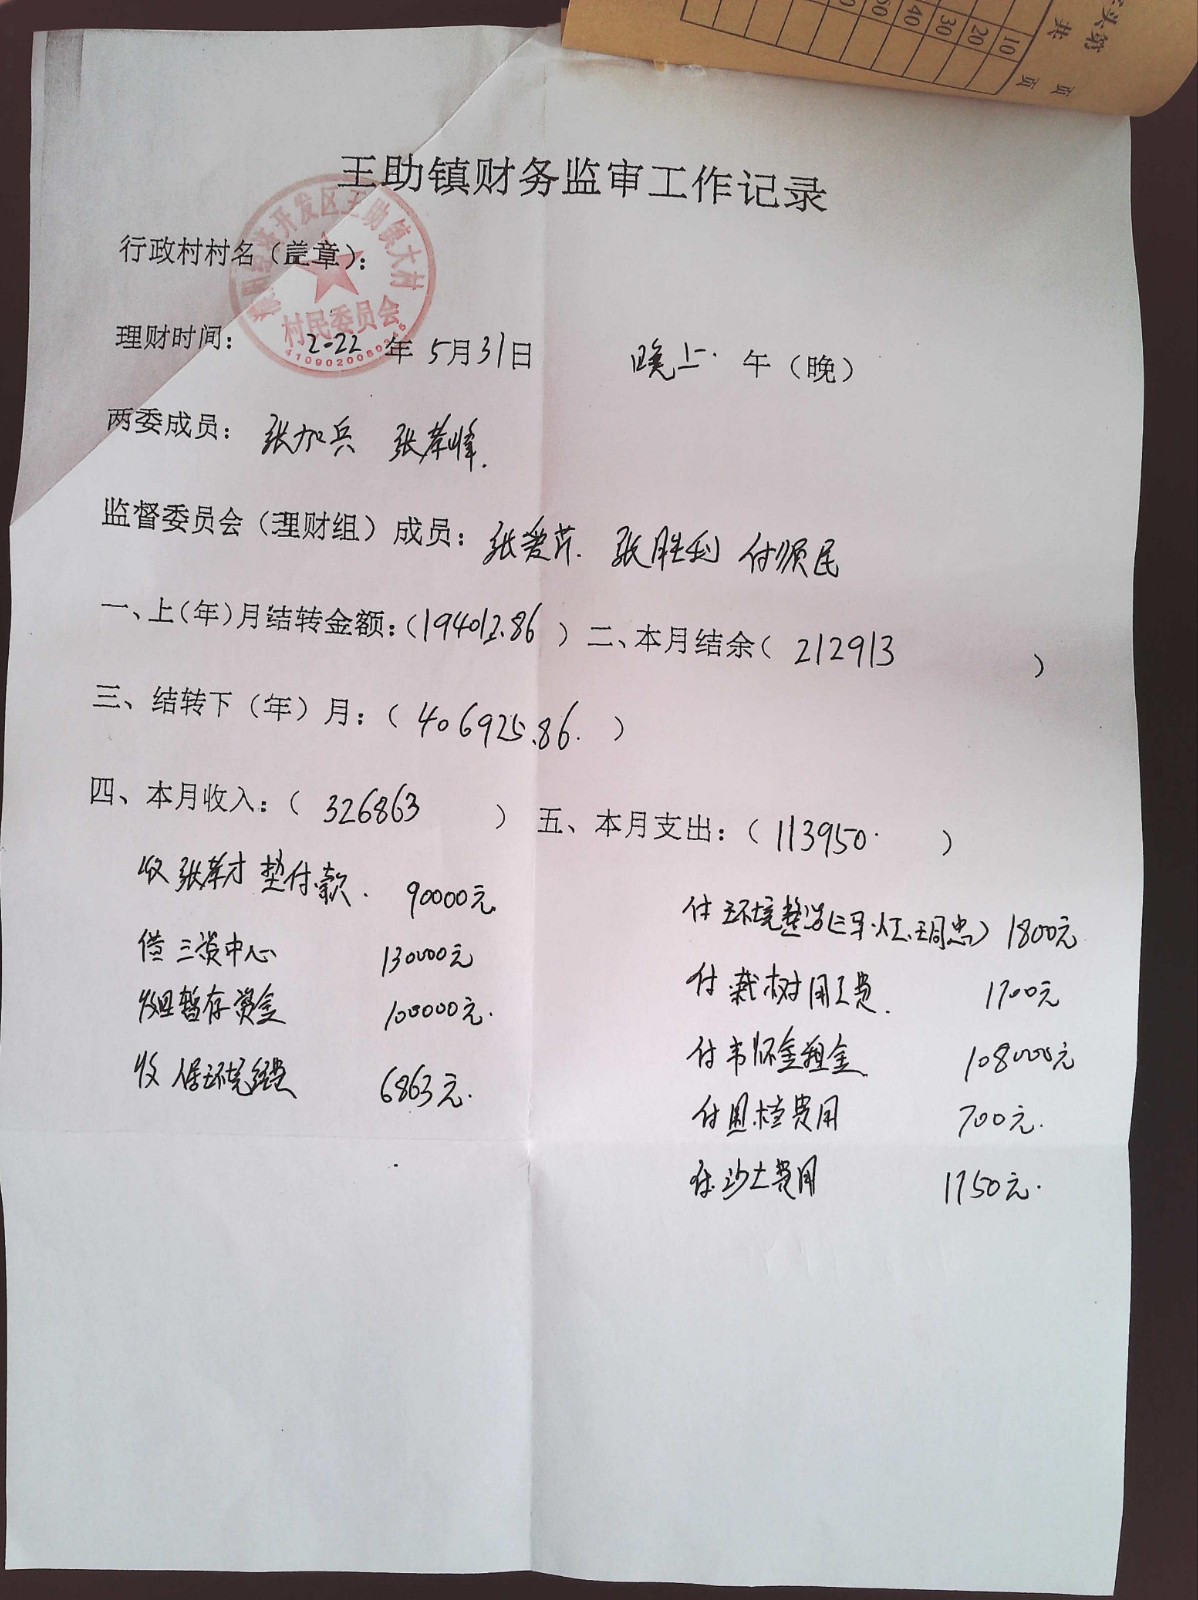 头第 页
共 页
10
20
30
40
60
王助镇财务监审工作记录
开发区王助镇大村
村民委员会
行政村村名（盖章）：
理财时间： 2022年5月31日 晚上 午（晚）
两委成员： 张加兵 张孝峰
监督委员会（理财组）成员：张爱芹 张胜利 付顺民
一、上（年）月结转金额：（194012.86）二、本月结余（212913）
三、结转下（年）月：（406925.86）
四、本月收入：（326863）五、本月支出：（113950）
收张孝才垫付款 90000元
付环境整治 1800元
借三资中心 130000元
付栽树用工费 1700元
收回暂存资金 100000元
付韦怀金租金 108000元
收 环境经费 6863元
付 费用 700元
付沙土费用 1750元